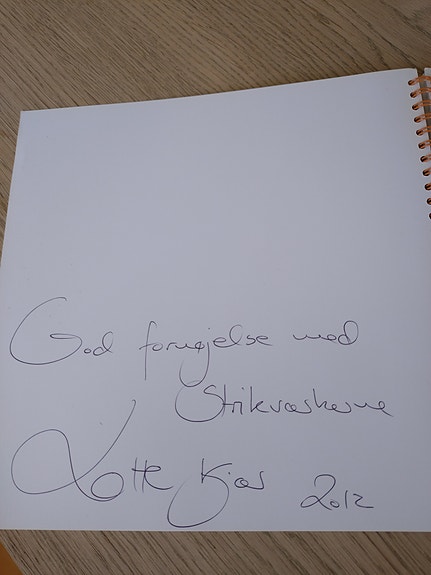 God fornøjelse med
Strikværkerne
Lotte Kjær 2012